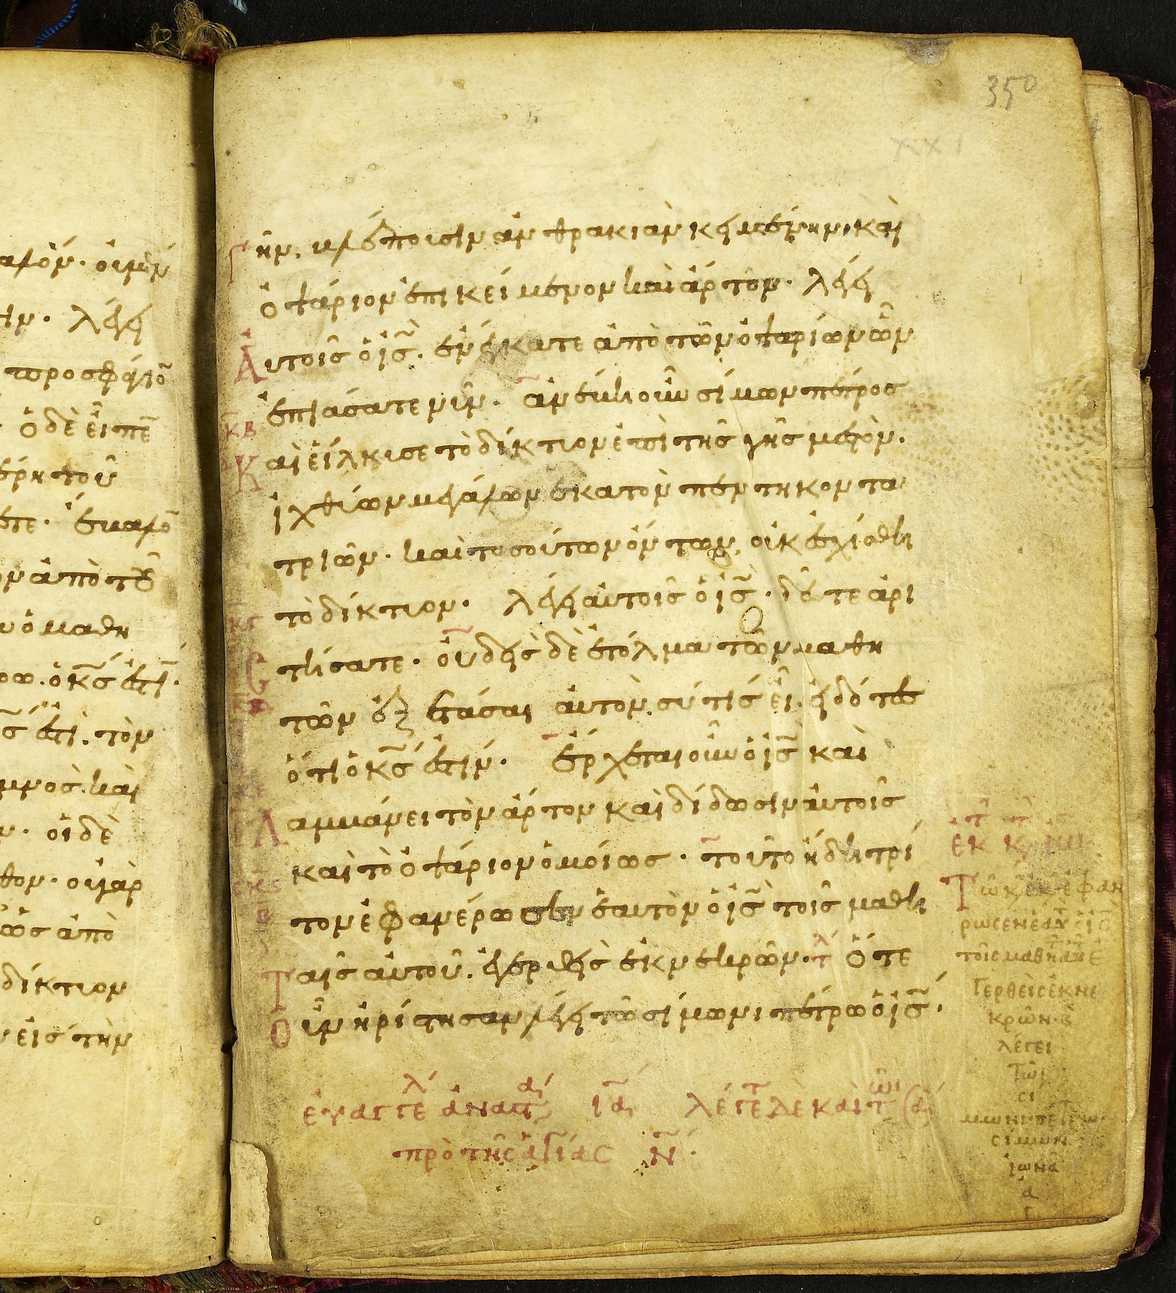 350
XXI
γῆν. βλέπουσιν ἀνθρακιὰν κειμένην, καὶ
ὀψάριον ἐπικείμενον καὶ ἄρτον. λέγει
Αὐτοῖς ὁ ις̅. ἐνέγκατε ἀπὸ τῶν ὀψαρίων ὧν
ἐπιάσατε νῦν. ἀνέβη οὖν σίμων πέτρος
Καὶ εἵλκισε τὸ δίκτιον ἐπὶ τῆς γῆς μεστὸν.
ἰχθύων μεγάλων ἑκατὸν πεντήκοντα
τριῶν. καὶ τοσούτων ὄντων, οὐκ ἐσχίσθη
τὸ δίκτιον. λέγει αὐτοῖς ὁ ις̅. δεῦτε ἀρι
στήσατε. οὐδεὶς δὲ ἐτόλμα τῶν μαθη
τῶν ἐξετάσαι αὐτὸν. σύ τίς εἶ. εἰδότες
ὅτι ὁ κς̅ ἐστίν. ἔρχεται οὖν ὁ ις̅ καὶ
Λαμβάνει τὸν ἄρτον καὶ δίδωσιν αὐτοῖς
καὶ τὸ ὀψάριον ὁμοίως. τοῦτο ἤδη τρί
τον ἐφανέρωσεν ἑαυτὸν ὁ ις̅ τοῖς μαθη
Ταῖς αὐτοῦ. ἐγερθεὶς ἐκ νεκρῶν. Ὅτε
Οὖν ἠρίστησαν λέγει τῶ σίμωνι πέτρω ὁ ις̅.
εὐαγγε λ ἀναστ ια λέγετ δὲ καὶ τ
πρὸ τῆς ἁγίας Ν
Τῶ κ ἐκ ἐφαν
ρωσεν ἑαυ ὁ ις
τοῖς μαθητ
γερθεὶς ἐκ νε
κρῶν.
λέγει
τῶ
σι
μωνι πέτρω
σίμων
ἰωνᾶ